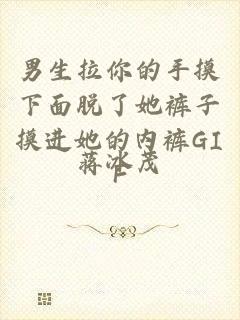 男生拉你的手摸
下面脱了她裤子
摸进她的内裤GI
F
蒋冰茂